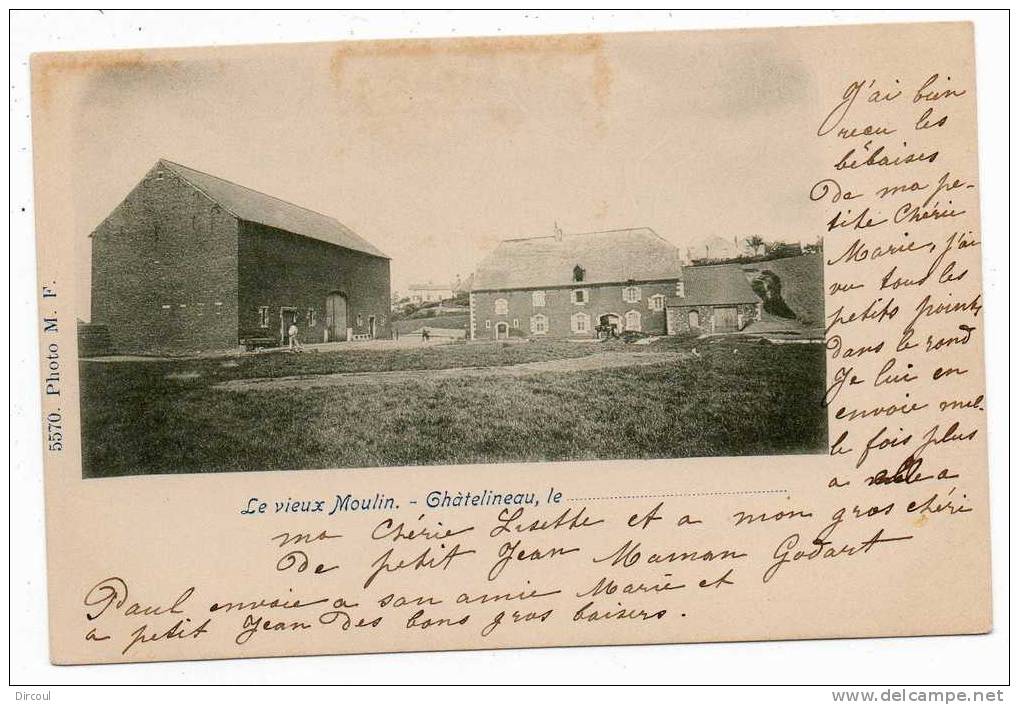 J'ai bien
recu les
bébaises
De ma pe-
tite Chérie
Marie, j'ai
vu tous les
petits points
Dans le rond
Je lui en
envoie mil-
le fois plus
a
a
5570. Photo M. F.
Le vieux Moulin. - Châtelineau, le
ma Chérie Lisette et a mon gros chéri
De petit Jean Maman Godart
Paul envoie a son amie Marie et
a petit Jean Des bons gros baisers.
Dircoul
www.delcampe.net